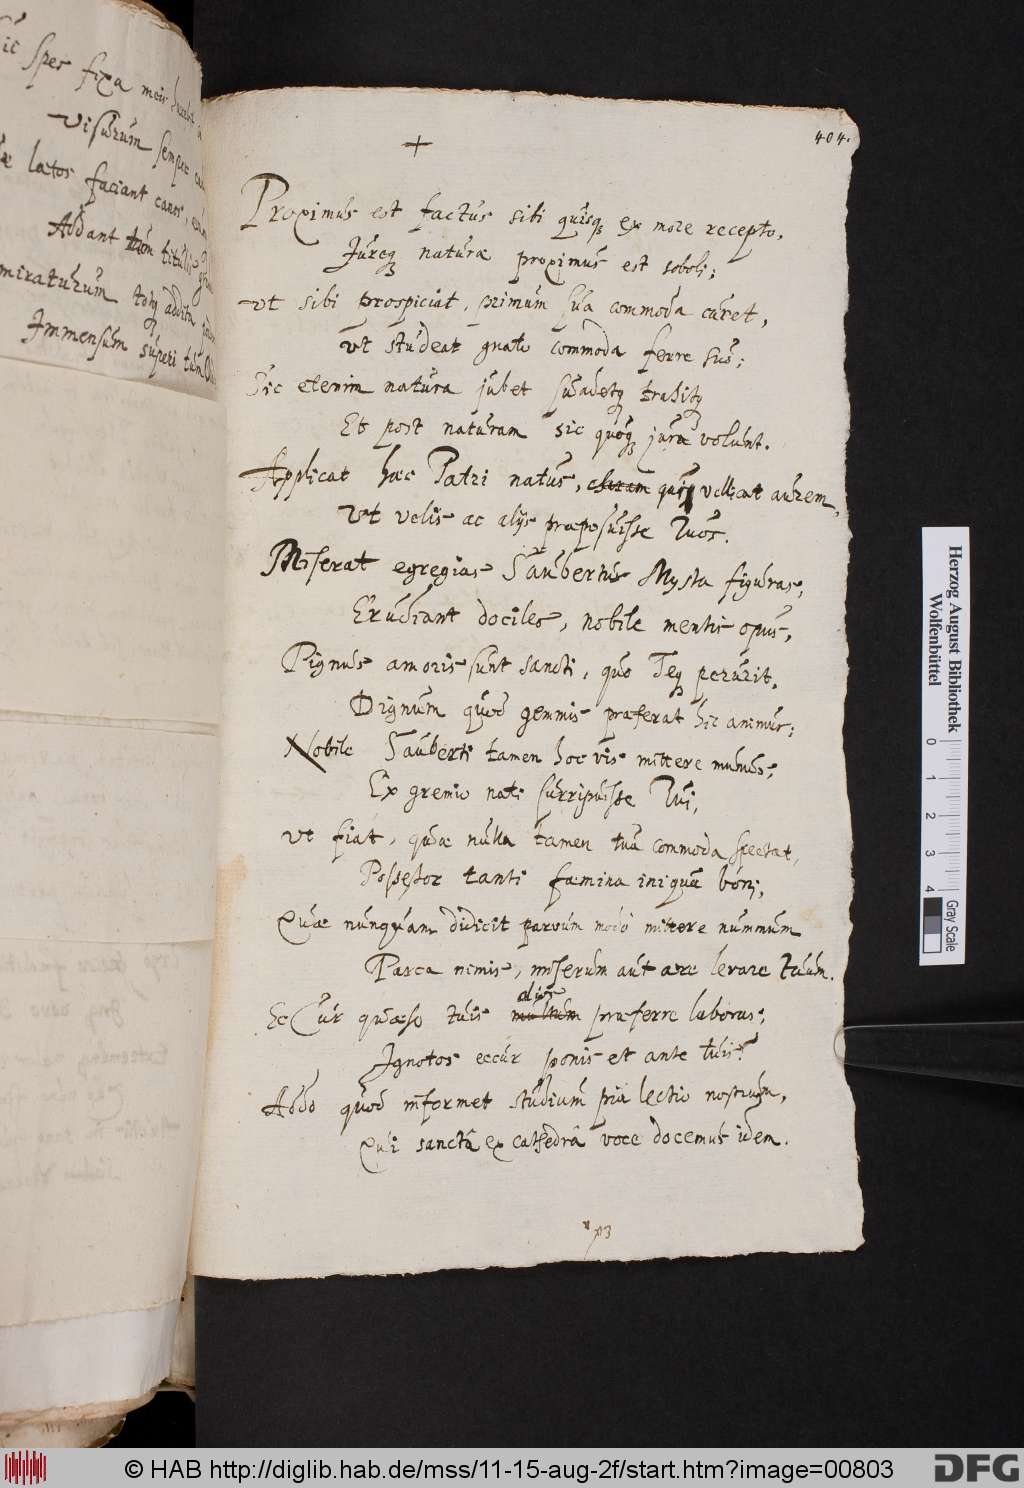 ic spes fixa meis
visurum semper
æ lætos faciant
Addant tituli
miraturum totq addita
Immensum superi tum
404.
+
Proximus est factus sibi quisq ex more recepto,
Jureq naturæ proximus est soboli;
Ut sibi prospiciat, primum sua commoda curet,
Ut studeat gnato commoda ferre suo;
Sic etenim natura jubet suadetq trahitq
Et post naturam sic quoq jura volunt.
Applicat hæc Patri natus, quiq vellicat aurem,
Ut velis ac alijs præposuisse Tuos.
Miserat egregias Saubertus Mysta figuras,
Erudiant dociles, nobile mentis opus,
Pignus amoris sunt sancti, quo Teq perurit,
Dignum quod gemmis præferat hic animus;
Nobile Sauberti tamen hoc vis mittere munus;
Ex gremio nati surripuisse Tui,
Ut fiat, quæ nulla tamen tua commoda spectat,
Possessor tanti fæmina iniqua boni;
Quæ nunquam didicit parvum modo mittere nummum
Parca nimis, miserum aut ære levare tuum.
Ec Cur quæso tuis alios multum præferre laboras;
Ignotos eccur ponis et ante tuis?
Addo quod informet studium pia lectio nostrum,
Qui sanctâ ex cathedrâ voce docemus idem.
Herzog August Bibliothek
Wolfenbüttel
0 1 2 3 4
Gray Scale
© HAB http://diglib.hab.de/mss/11-15-aug-2f/start.htm?image=00803
DFG